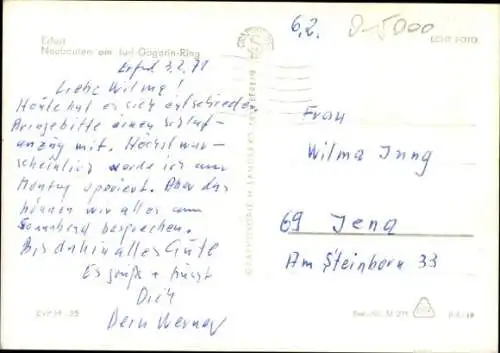 Erfurt
Neubauten am Juri-Gagarin-Ring
6,2. D-5000
ECHT FOTO
Erfurt 3.2.71
Liebe Wilma!
Heute hat es sich entschieden.
Bringe bitte einen Schlaf-
anzug mit. Höchstwahr-
scheinlich werde ich am
Montag operiert. Aber das
können wir alles am
Sonnabend besprechen.
Bis dahin alles Gute
Es grüßt + küsst
Dich
Dein Werner
Frau
Wilma Jung
69 Jena
Am Steinborn 33